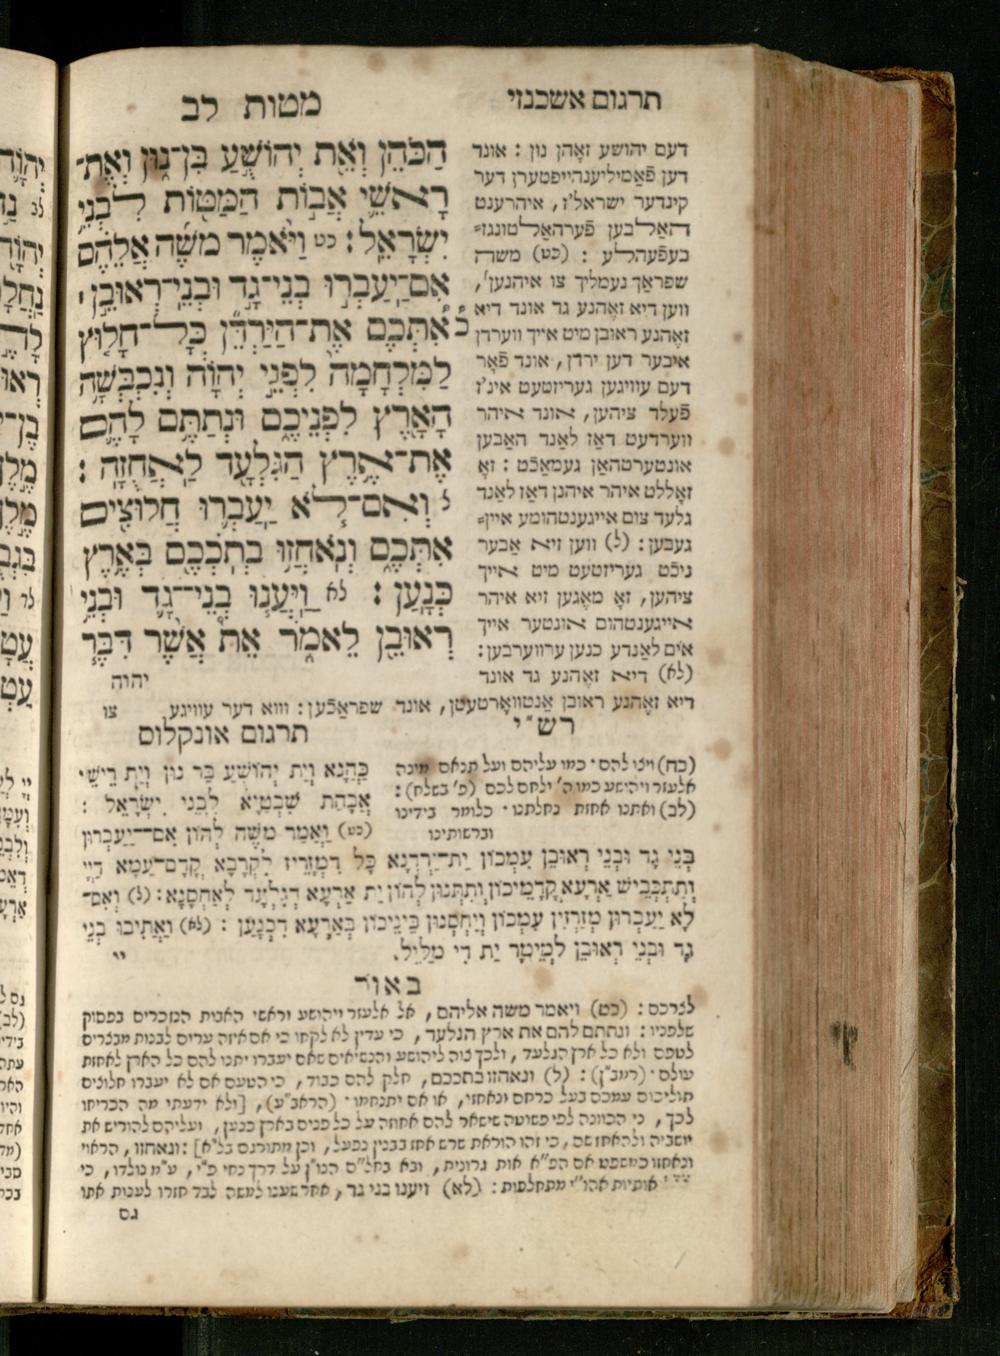 תרגום אשכנזי
מטות לב
הַכֹּהֵן וְאֵת יְהוֹשֻׁעַ בִּן־נוּן וְאֶת־
רָאשֵׁי אֲבוֹת הַמַּטּוֹת לִבְנֵי
יִשְׂרָאֵל׃ כט וַיֹּאמֶר מֹשֶׁה אֲלֵהֶם
אִם־יַעַבְרוּ בְנֵי־גָד וּבְנֵי־רְאוּבֵן ׀
אִתְּכֶם אֶת־הַיַּרְדֵּן כָּל־חָלוּץ
לַמִּלְחָמָה לִפְנֵי יְהוָֹה וְנִכְבְּשָׁה
הָאָרֶץ לִפְנֵיכֶם וּנְתַתֶּם לָהֶם
אֶת־אֶרֶץ הַגִּלְעָד לַאֲחֻזָּה׃
ל וְאִם־לֹא יַעַבְרוּ חֲלוּצִים
אִתְּכֶם וְנֹאחֲזוּ בְתֹכְכֶם בְּאֶרֶץ
כְּנָעַן׃ לא וַיַּעֲנוּ בְנֵי־גָד וּבְנֵי
רְאוּבֵן לֵאמֹר אֵת אֲשֶׁר דִּבֶּר
יהוה
דעם יהושע זאָהן נון : אונד
דען פֿאַמיליענהייפטערן דער
קינדער ישראל'ז, איהרענט
האַלבען פֿערהאַלטונגז=
בעפֿעהלע : (כט) משה
שפראַך נעמליך צו איהנען',
ווען דיא זאָהנע גד אונד דיא
זאָהנע ראובן מיט אייך ווערדן
איבער דען ירדן, אונד פֿאָר
דעם עוויגען געריזטעט אינ'ז
פֿעלד ציהען, אונד איהר
ווערדעט דאַז לאַנד האַבען
אונטערטהאַן געמאַכֿט : זאָ
זאָללט איהר איהנן דאַז לאַנד
גלעד צום אייגענטהומע איין=
געבען : (ל) ווען זיא אַבער
ניכֿט געריזטעט מיט אייך
ציהען, זאָ מאָגען זיא איהר
אייגענטהום אונטער אייך
אים לאַנדע כנען ערווערבען :
(לא) דיא זאָהנע גד אונד
דיא זאָהנע ראובן אַנטוואָרטעטן, אונד שפראַכֿען : וואז דער עוויגע צו
רש"י
(כח) ויצו להם · כמו עליהם ועל תנאם מינה
אלעזר ויהושע כמו ה' ילחם לכם (פ' בשלח) :
(לב) ואתנו אחזת נחלתנו · כלומר בידינו
וברשותינו
תרגום אונקלוס
כַּהֲנָא וְיָת יְהוֹשֻׁעַ בַּר נוּן וְיָת רֵישֵׁי
אֲבָהַת שִׁבְטַיָּא לִבְנֵי יִשְׂרָאֵל :
(כט) וַאֲמַר מֹשֶׁה לְהוֹן אִם־יַעְבְּרוּן
בְּנֵי גָד וּבְנֵי רְאוּבֵן עִמְּכוֹן יַת־יַרְדְּנָא כָּל דִּמְזָרֵיז לִקְרָבָא קֳדָם־עַמָּא דַיְיָ
וְתִתְכְּבֵישׁ אַרְעָא קֳדָמֵיכוֹן וְתִתְּנוּן לְהוֹן יַת אַרְעָא דְגִלְעָד לְאַחְסָנָא : (ל) וְאִם־
לָא יַעְבְּרוּן מְזָרְזִין עִמְּכוֹן וְיַחְסְנוּן בֵּינֵיכוֹן בְּאַרְעָא דִכְנָעַן : (לא) וַאֲתִיבוּ בְנֵי
גָד וּבְנֵי רְאוּבֵן לְמֵימָר יַת דִּי מַלֵּיל.
יי
באור
לנדכם : (כט) ויאמר משה אליהם, אל אלעזר ויהושע וראשי האבות הנזכרים בפסוק
שלפניו : ונתתם להם את ארץ הגלעד, כי עדין לא לקחו כי אם איזה ערים לבנות מבצרים
לטפם ולא כל ארץ הגלעד, ולכך צוה ליהושע והנשיאים שאם יעברו יתנו להם כל הארץ לאחזת
עולם · (רמב"ן) : (ל) ונאחזו בתככם, חלק להם כבוד, כי הטעם אם לא יעברו חלוצים
תוליכום עמכם בעל כרחם ונאחזו, או אם יתנחמו · (הראב"ע), [ולא ידעתי מה הכריחו
לכך, כי הכוונה לפי פשוטה שישאר להם אחוזה על כל פנים בארץ כנען, ועליהם להוריש את
יושביה ולהאחז שם, כי זהו הוראת שרש אחז בבנין נפעל, וכן מתורגם בל"א] : ונאחזו, הראוי
ונאחזו כמשפט אם הפ"א אות גרונית, ובא בחל"ם הנו"ן על דרך נחי פ"י, ע"מ נולדו, כי
אותיות אהו"י מתחלפות : (לא) ויענו בני גד, אחר שענו למשה לבד חזרו לענות אתו
גם